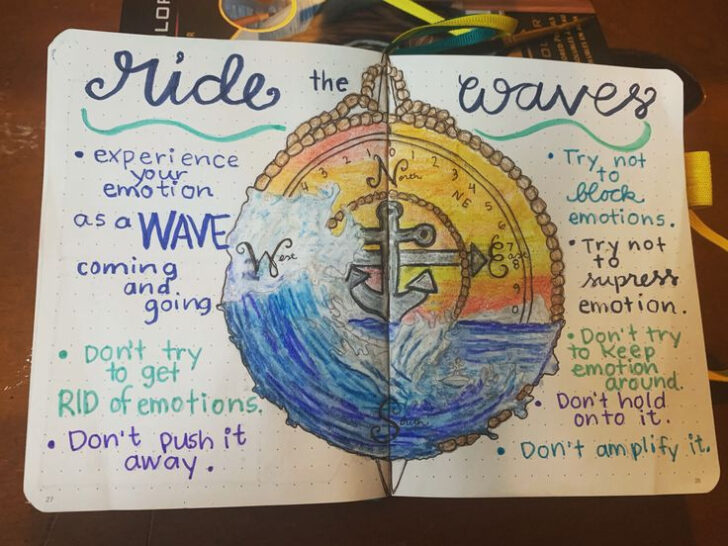 ride the waves
• experience
your
emotion
as a WAVE
coming
and
going
• Don't try
to get
RID of emotions.
• Don't push it
away.
• Try not
to
block
emotions.
• Try not
to
supress
emotion.
• Don't try
to keep
emotion
around.
• Don't hold
onto it.
• Don't amplify it.
4 3 2 1 0 1 2 3 4 5 6 7 8 9 0
North
NE
West
East
South
27